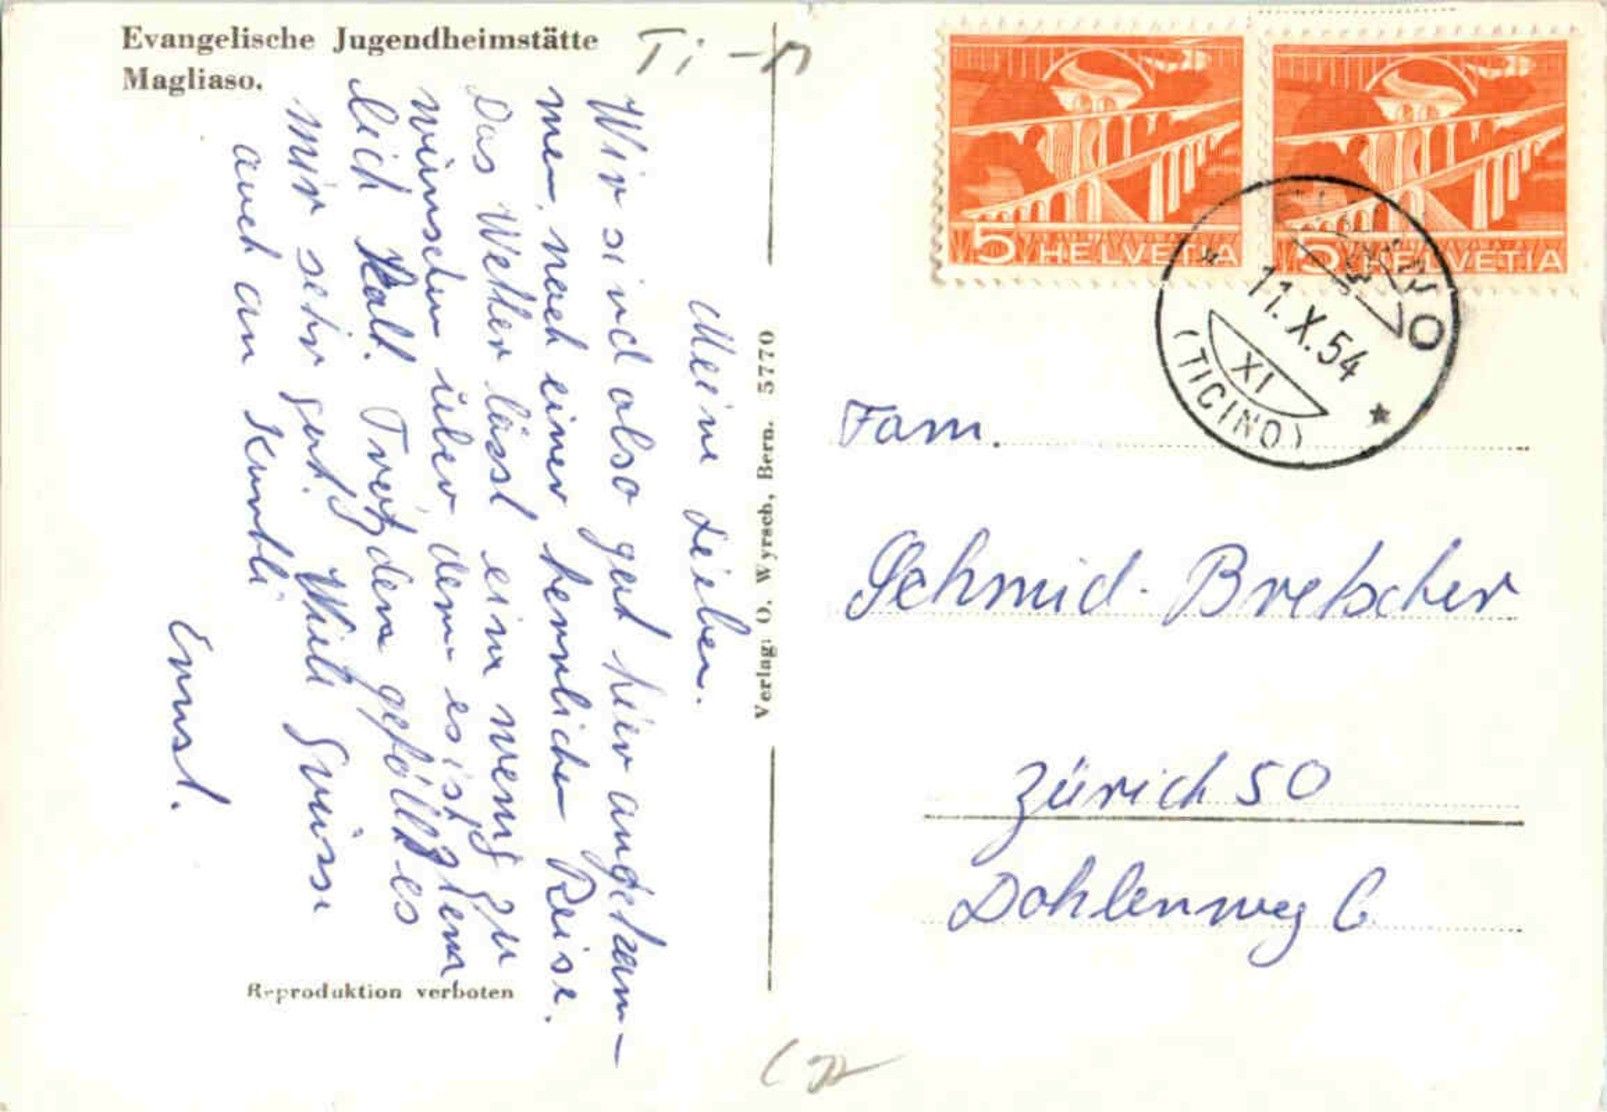 Evangelische Jugendheimstätte
Magliaso.
Meine Lieben.
Wir sind also gut hier angekom-
men, nach einer herrlichen Reise.
Das Wetter lässt ein wenig zu
wünschen über, denn es ist ziem-
lich kalt. Trotzdem gefällt es
mir sehr gut. Viele Grüsse
auch an
Ernst.
Reproduktion verboten
Verlag: O. Wyrsch, Bern. 5770
5 HELVETIA
5 HELVETIA
11.X.54
XI
(TICINO)
Fam.
Schmid-Bretscher
Zürich 50
Dohlenweg 6